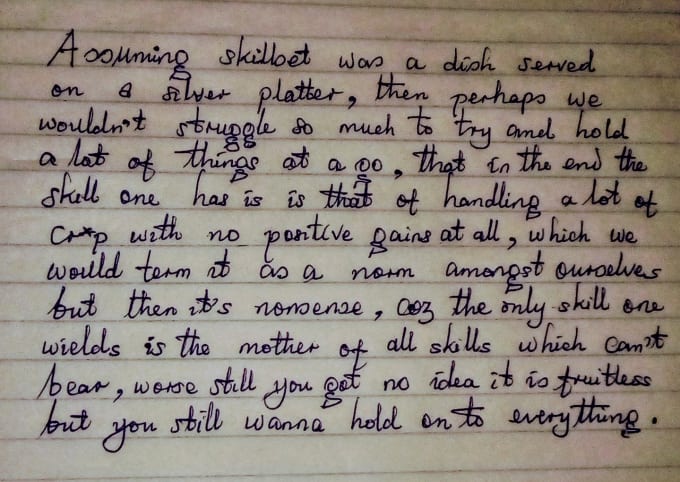 Assuming skillset was a dish served
on a silver platter, then perhaps we
wouldn't struggle so much to try and hold
a lot of things at a go, that in the end the
skill one has is is that of handling a lot of
cr*p with no positive gains at all, which we
would term it as a norm amongst ourselves
but then it's nonsense, coz the only skill one
wields is the mother of all skills which can't
bear, worse still you got no idea it is fruitless
but you still wanna hold on to everything.